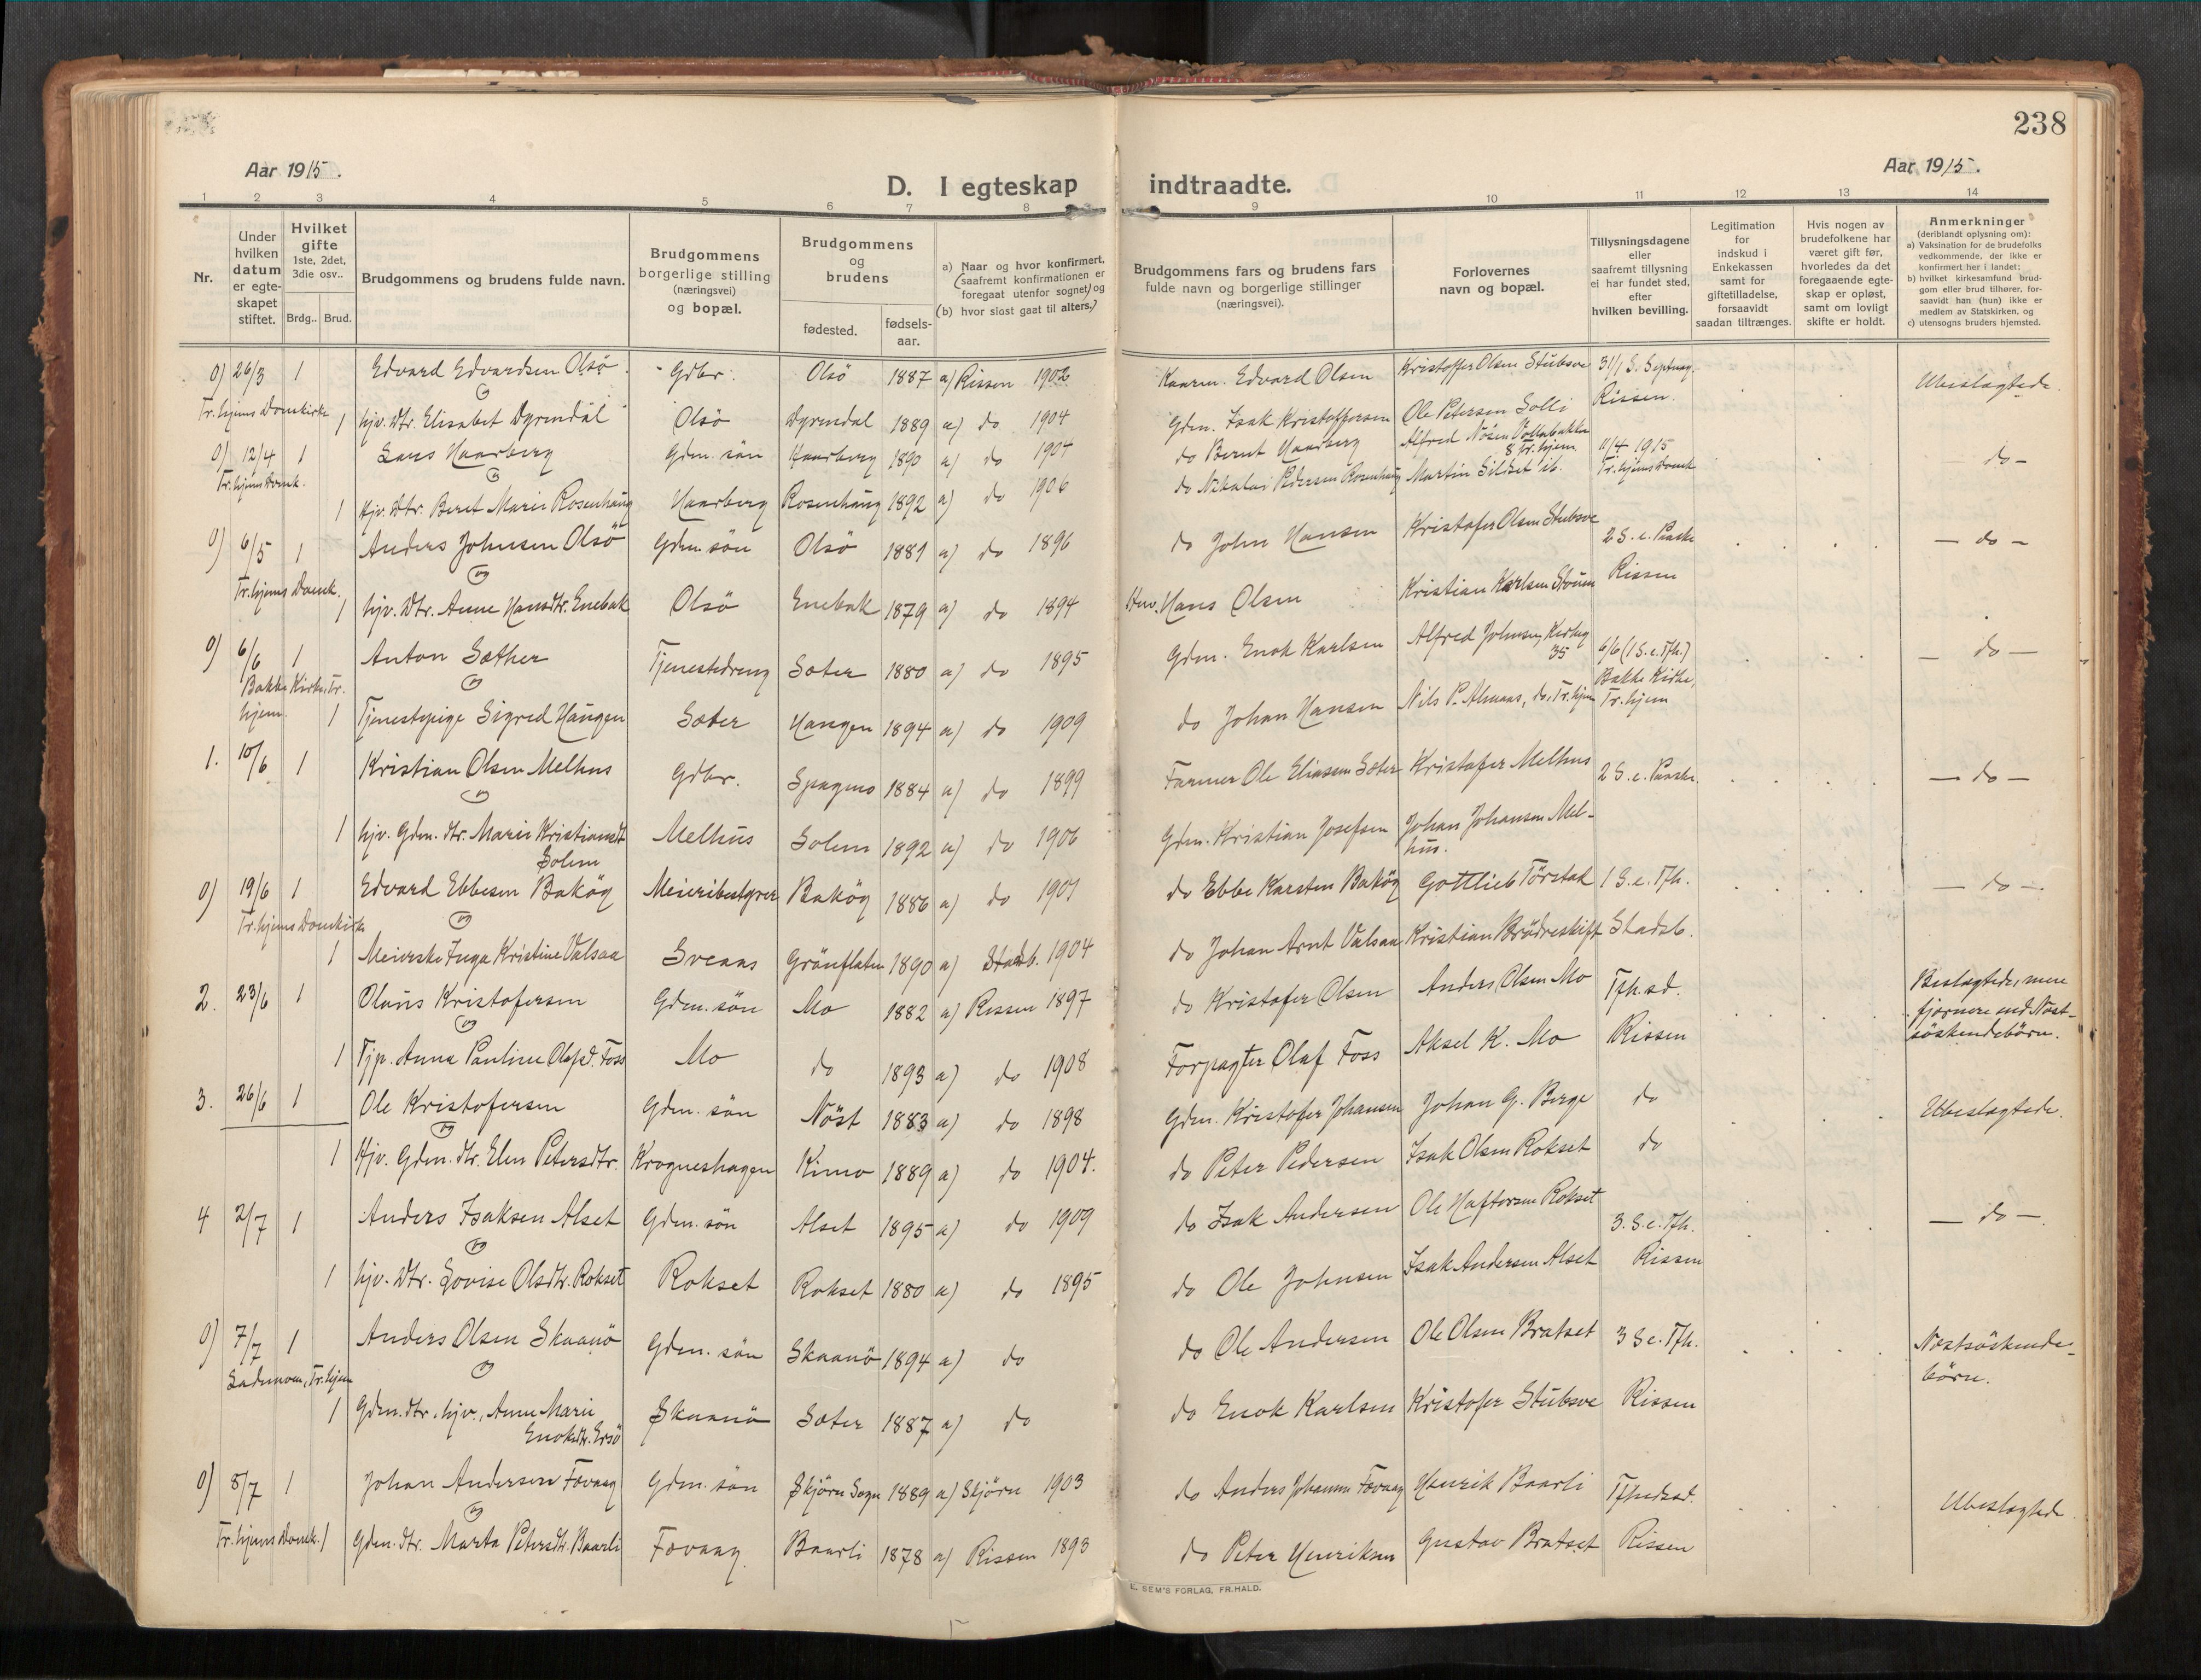 238
Aar 1915.
Aar 1915.
D. I egteskap indtraadte.
1 2 3 4 5 6 7 8 9 10 11 12 13 14
Nr.
Under hvilken datum er egteskapet stiftet.
Hvilket gifte 1ste, 2det, 3die osv..
Brdg.. Brud.
Brudgommens og brudens fulde navn.
Brudgommens borgerlige stilling (næringsvei) og bopæl.
Brudgommens og brudens
fødested. fødselsaar.
a) Naar og hvor konfirmert, (saafremt konfirmationen er foregaat utenfor sognet) og (b) hvor sidst gaat til alters.)
Brudgommens fars og brudens fars fulde navn og borgerlige stillinger (næringsvei).
Forlovernes navn og bopæl.
Tillysningsdagene eller saafremt tillysning ei har fundet sted, efter hvilken bevilling.
Legitimation for indskud i Enkekassen samt for giftetilladelse, forsaavidt saadan tiltrænges.
Hvis nogen av brudefolkene har været gift før, hvorledes da det foregaaende egteskap er opløst, samt om lovligt skifte er holdt.
Anmerkninger (deriblandt oplysning om):
a) Vaksination for de brudefolks vedkommende, der ikke er konfirmert her i landet;
b) hvilket kirkesamfund brudgom eller brud tilhører, forsaavidt han (hun) ikke er medlem av Statskirken, og
c) utensogns bruders hjemsted.
0) 26/3 1 Edvard Edvardsen Olsö Gdbr. Olsö 1887 a) Rissen 1902 Edvard Olsen Kristoffer Olsen Stubsve 31/1 S. Septuag. Ubeslægtede.
Tr.hjems Domkirke og Rissen.
1 hjv. Dtr. Elisabet Dyrendal Olsö Dyrendal 1889 a) do 1904 Gdm. Isak Kristoffersen Ole Petersen Solli
0) 12/4 1 Lars Haarberg Gdm. sön Haarberg 1890 a) do 1904 do Bernt Haarberg Alfred 8 Tr.hjem 11/4 1915 do -
Tr.hjems Domk. og Tr.hjems Domk
1 Hjv. Dtr. Beret Marie Rosenhaug Haarberg Rosenhaug 1892 a) do 1906 do Nikolai Pedersen Rosenhaug Martin Silset ib.
0) 6/5 1 Anders Johnsen Olsö Gdm. sön Olsö 1881 a) do 1896 do John Hansen Kristofer Olsen Stubsve 2 S. e. Paaske - do -
Tr.hjems Domk. og Rissen
1 hjv. Dtr. Anne Hansdtr. Enebak Olsö Enebak 1879 a) do 1894 Hans Olsen Kristian Karlsen
0) 6/6 1 Anton Sæther Tjenestedreng Sæter 1880 a) do 1895 Gdm. Enok Karlsen Alfred Johnsen, 35 6/6 (1 S. e. Tfh.) - do -
Bakke Kirke, Tr.hjem. og Bakke Kirke,
1 Tjenestepige Sigred Haugen Sæter Haugen 1894 a) do 1909 do Johan Hansen Nils P. Almaas, do, Tr.hjem Tr.hjem
1. 10/6 1 Kristian Olsen Melhus Gdbr. Spagmo 1884 a) do 1899 Farmer Ole Eliassen Sæter Kristofer Melhus 2 S. e. Paaske. - do -
og
1 hjv. Gdm. dtr. Marie Kristiansdt. Solem Melhus Solem 1892 a) do 1906 Gdm. Kristian Josefsen Johan Johansen Melhus.
0) 19/6 1 Edvard Ebbesen Baköy Meieribestyrer Baköy 1886 a) do 1901 do Ebbe Karsten Baköy Gottlieb Törstad 1 S. e. Tfh. - do -
Tr.hjems Domkirke og
1 Meierske Inga Kristine Valsaa Sveaas Grönflaten 1890 a) Stadsb. 1904 do Johan Arnt Valsaa Kristian Brödreskift Stadsb.
2. 23/6 1 Olaus Kristofersen Gdm. sön Mo 1882 a) Rissen 1897 do Kristofer Olsen Anders Olsen Mo Tfh. sd. Beslægtede, men fjernere end Næstsöskendebörn.
og
1 Tjp. Anna Pauline Olafsd. Foss Mo do 1893 a) do 1908 Forpagter Olaf Foss Aksel K. Mo Rissen
3. 26/6 1 Ole Kristofersen Gdm. sön Nöst 1883 a) do 1898 Gdm. Kristofer Johansen Johan G. Berge do Ubeslægtede.
og
1 Hjv. Gdm. dtr. Elen Petersdtr. Krogneshagen Kimo 1889 a) do 1904. do Peter Pedersen Isak Olsen Rokset do
4 2/7 1 Anders Isaksen Alset Gdm. sön Alset 1895 a) do 1909 do Isak Andersen Ole Haftorsen Rokset 3. S. e. Tfh. - do -.
og
1 hjv. Dtr. Lovise Olsdtr. Rokset Rokset Rokset 1880 a) do 1895 do Ole Johnsen Isak Andersen Alset Rissen
0) 7/7 1 Anders Olsen Skaanö Gdm. sön Skaanö 1894 a) do do Ole Andersen Ole Olsen Bratset 3 S e. Tfh. Næstsöskendebörn.
Lademoen, Tr.hjem og
1 Gdm. dtr. hjv., Anne Marie Enoksdtr. Ersö Skaanö Sæter 1887 a) do do Enok Karlsen Kristofer Stubsve Rissen
0) 8/7 1 Johan Andersen Fovaag Gdm. sön Skjörn Sogn 1889 a) Skjörn 1903 do Anders Johannsen Fovaag Henrik Baarli Ubeslægtede.
Tr.hjems Domk. og
1 Gdm. dtr. Marta Petersdtr. Baarli Fovaag Baarli 1878 a) Rissen 1893 do Peter Henriksen Gustav Bratset Rissen
E. SEM'S FORLAG, FR.HALD.